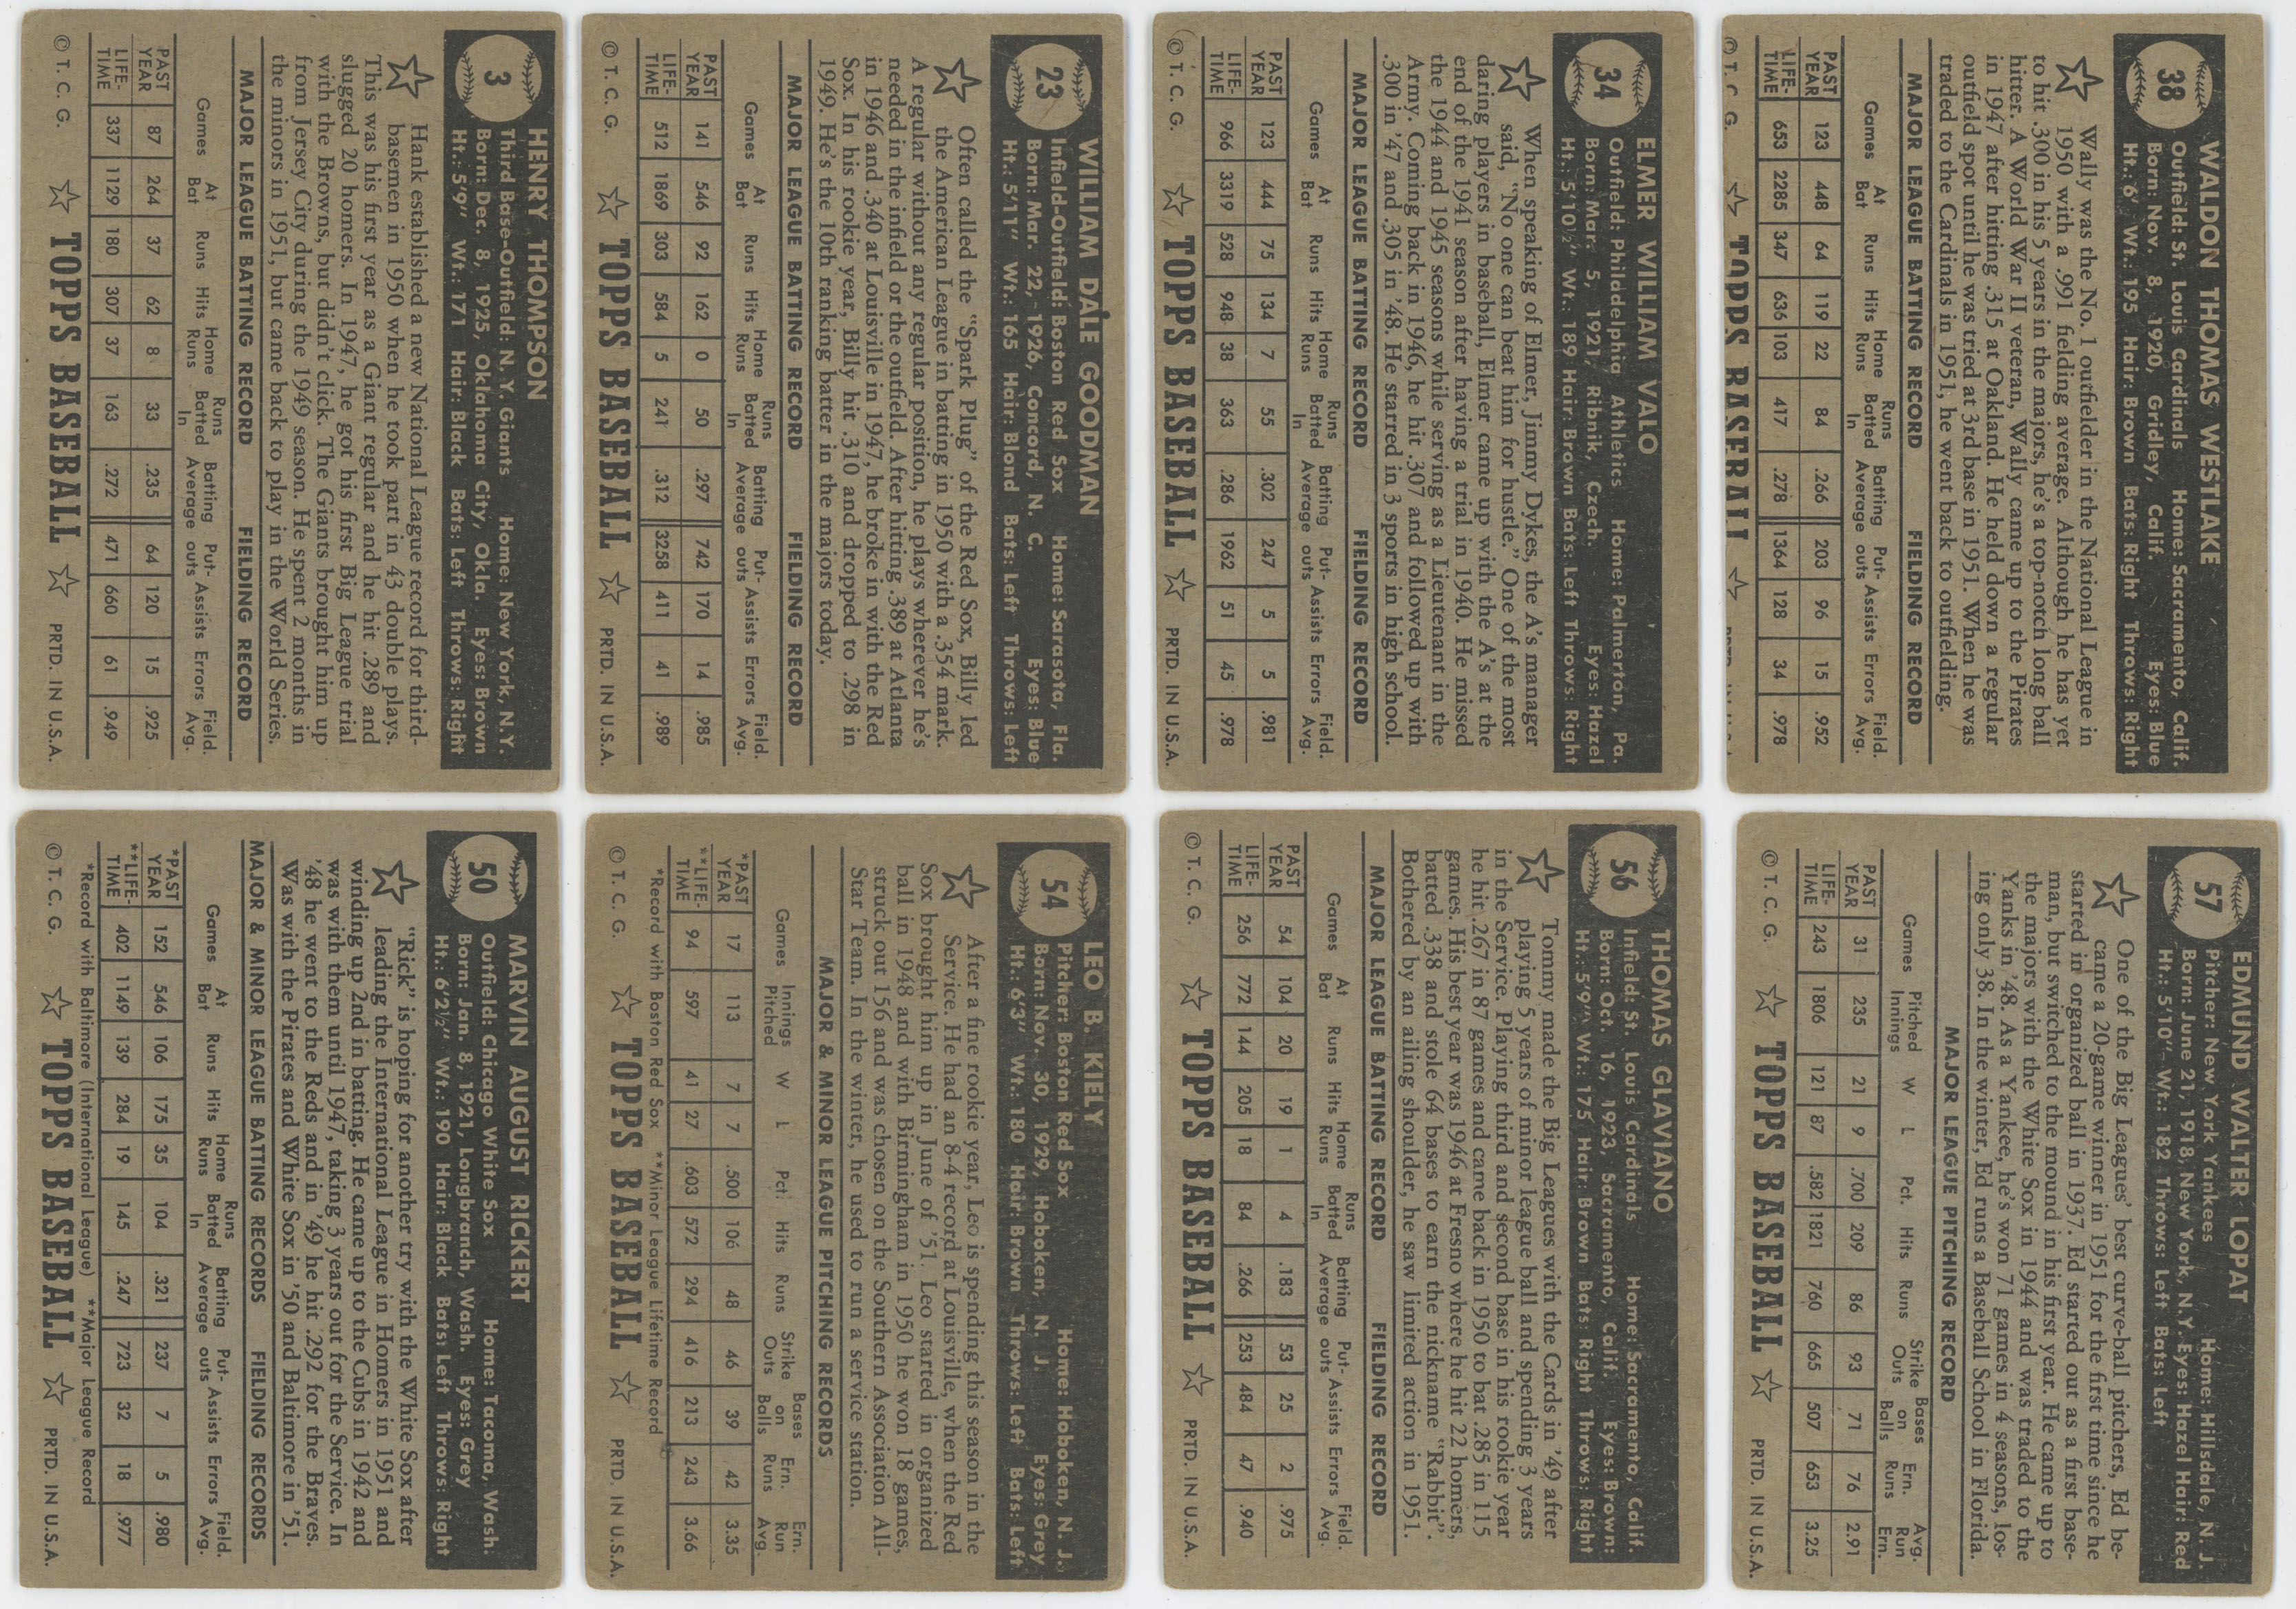 3
HENRY THOMPSON
Third Base-Outfield: N. Y. Giants Home: New York, N.Y.
Born: Dec. 8, 1925, Oklahoma City, Okla. Eyes: Brown
Ht.: 5'9" Wt.: 171 Hair: Black Bats: Left Throws: Right
Hank established a new National League record for third-
basemen in 1950 when he took part in 43 double plays.
This was his first year as a Giant regular and he hit .289 and
slugged 20 homers. In 1947, he got his first Big League trial
with the Browns, but didn't click. The Giants brought him up
from Jersey City during the 1949 season. He spent 2 months in
the minors in 1951, but came back to play in the World Series.
MAJOR LEAGUE BATTING RECORD FIELDING RECORD
Games At Bat Runs Hits Home Runs Runs Batted In Batting Average Put-outs Assists Errors Field. Avg.
PAST YEAR 87 264 37 62 8 33 .235 64 120 15 .925
LIFE-TIME 337 1129 180 307 37 163 .272 471 660 61 .949
© T. C. G. ☆ TOPPS BASEBALL ☆ PRTD. IN U.S.A.
23
WILLIAM DALE GOODMAN
Infield-Outfield: Boston Red Sox Home: Sarasota, Fla.
Born: Mar. 22, 1926, Concord, N. C. Eyes: Blue
Ht.: 5'11" Wt.: 165 Hair: Blond Bats: Left Throws: Left
Often called the "Spark Plug" of the Red Sox, Billy led
the American League in batting in 1950 with a .354 mark.
A regular without any regular position, he plays wherever he's
needed in the infield or the outfield. After hitting .389 at Atlanta
in 1946 and .340 at Louisville in 1947, he broke in with the Red
Sox. In his rookie year, Billy hit .310 and dropped to .298 in
1949. He's the 10th ranking batter in the majors today.
MAJOR LEAGUE BATTING RECORD FIELDING RECORD
Games At Bat Runs Hits Home Runs Runs Batted In Batting Average Put-outs Assists Errors Field. Avg.
PAST YEAR 141 546 92 162 0 50 .297 742 170 14 .985
LIFE-TIME 512 1869 303 584 5 241 .312 3258 411 41 .989
© T. C. G. ☆ TOPPS BASEBALL ☆ PRTD. IN U.S.A.
34
ELMER WILLIAM VALO
Outfield: Philadelphia Athletics Home: Palmerton, Pa.
Born: Mar. 5, 1921, Ribnik, Czech. Eyes: Hazel
Ht.: 5'10½" Wt.: 189 Hair: Brown Bats: Left Throws: Right
When speaking of Elmer, Jimmy Dykes, the A's manager
said, "No one can beat him for hustle." One of the most
daring players in baseball, Elmer came up with the A's at the
end of the 1941 season after having a trial in 1940. He missed
the 1944 and 1945 seasons while serving as a Lieutenant in the
Army. Coming back in 1946, he hit .307 and followed up with
.300 in '47 and .305 in '48. He starred in 3 sports in high school.
MAJOR LEAGUE BATTING RECORD FIELDING RECORD
Games At Bat Runs Hits Home Runs Runs Batted In Batting Average Put-outs Assists Errors Field. Avg.
PAST YEAR 123 444 75 134 7 55 .302 247 5 5 .981
LIFE-TIME 966 3319 528 948 38 363 .286 1962 51 45 .978
© T. C. G. ☆ TOPPS BASEBALL ☆ PRTD. IN U.S.A.
38
WALDON THOMAS WESTLAKE
Outfield: St. Louis Cardinals Home: Sacramento, Calif.
Born: Nov. 8, 1920, Gridley, Calif. Eyes: Blue
Ht.: 6' Wt.: 195 Hair: Brown Bats: Right Throws: Right
Wally was the No. 1 outfielder in the National League in
1950 with a .991 fielding average. Although he has yet
to hit .300 in his 5 years in the majors, he's a top-notch long ball
hitter. A World War II veteran, Wally came up to the Pirates
in 1947 after hitting .315 at Oakland. He held down a regular
outfield spot until he was tried at 3rd base in 1951. When he was
traded to the Cardinals in 1951, he went back to outfielding.
MAJOR LEAGUE BATTING RECORD FIELDING RECORD
Games At Bat Runs Hits Home Runs Runs Batted In Batting Average Put-outs Assists Errors Field. Avg.
PAST YEAR 123 448 64 119 22 84 .266 203 96 15 .952
LIFE-TIME 653 2285 347 636 103 417 .278 1364 128 34 .978
© T. C. G. ☆ TOPPS BASEBALL ☆ PRTD. IN U.S.A.
50
MARVIN AUGUST RICKERT
Outfield: Chicago White Sox Home: Tacoma, Wash.
Born: Jan. 8, 1921, Longbranch, Wash. Eyes: Grey
Ht.: 6'2½" Wt.: 190 Hair: Black Bats: Left Throws: Right
"Rick" is hoping for another try with the White Sox after
leading the International League in Homers in 1951 and
winding up 2nd in batting. He came up to the Cubs in 1942 and
was with them until 1947, taking 3 years out for the Service. In
'48 he went to the Reds and in '49 he hit .292 for the Braves.
Was with the Pirates and White Sox in '50 and Baltimore in '51.
MAJOR & MINOR LEAGUE BATTING RECORDS FIELDING RECORDS
Games At Bat Runs Hits Home Runs Runs Batted In Batting Average Put-outs Assists Errors Field. Avg.
*PAST YEAR 152 546 106 175 35 104 .321 237 7 5 .980
**LIFE-TIME 402 1149 139 284 19 145 .247 723 32 18 .977
*Record with Baltimore (International League) **Major League Record
© T. C. G. ☆ TOPPS BASEBALL ☆ PRTD. IN U.S.A.
54
LEO B. KIELY
Pitcher: Boston Red Sox Home: Hoboken, N. J.
Born: Nov. 30, 1929, Hoboken, N. J. Eyes: Grey
Ht.: 6'3" Wt.: 180 Hair: Brown Throws: Left Bats: Left
After a fine rookie year, Leo is spending this season in the
Service. He had an 8-4 record at Louisville, when the Red
Sox brought him up in June of '51. Leo started in organized
ball in 1948 and with Birmingham in 1950 he won 18 games,
struck out 156 and was chosen on the Southern Association All-
Star Team. In the winter, he used to run a service station.
MAJOR & MINOR LEAGUE PITCHING RECORDS
Games Innings Pitched W L Pct. Hits Runs Strike Outs Bases on Balls Ern. Runs Ern. Run Avg.
*PAST YEAR 17 113 7 7 .500 106 48 46 39 42 3.35
**LIFE-TIME 94 597 41 27 .603 572 294 416 213 243 3.66
*Record with Boston Red Sox **Minor League Lifetime Record
© T. C. G. ☆ TOPPS BASEBALL ☆ PRTD. IN U.S.A.
56
THOMAS GLAVIANO
Infield: St. Louis Cardinals Home: Sacramento, Calif.
Born: Oct. 16, 1923, Sacramento, Calif. Eyes: Brown
Ht.: 5'9" Wt.: 175 Hair: Brown Bats: Right Throws: Right
Tommy made the Big Leagues with the Cards in '49 after
playing 5 years of minor league ball and spending 3 years
in the Service. Playing third and second base in his rookie year
he hit .267 in 87 games and came back in 1950 to bat .285 in 115
games. His best year was 1946 at Fresno where he hit 22 homers,
batted .338 and stole 64 bases to earn the nickname "Rabbit".
Bothered by an ailing shoulder, he saw limited action in 1951.
MAJOR LEAGUE BATTING RECORD FIELDING RECORD
Games At Bat Runs Hits Home Runs Runs Batted In Batting Average Put-outs Assists Errors Field. Avg.
PAST YEAR 54 104 20 19 1 4 .183 53 25 2 .975
LIFE-TIME 256 772 144 205 18 84 .266 253 484 47 .940
© T. C. G. ☆ TOPPS BASEBALL ☆ PRTD. IN U.S.A.
57
EDMUND WALTER LOPAT
Pitcher: New York Yankees Home: Hillsdale, N. J.
Born: June 21, 1918, New York, N.Y. Eyes: Hazel Hair: Red
Ht.: 5'10" Wt.: 182 Throws: Left Bats: Left
One of the Big Leagues' best curve-ball pitchers, Ed be-
came a 20-game winner in 1951 for the first time since he
started in organized ball in 1937. Ed started out as a first base-
man, but switched to the mound in his first year. He came up to
the majors with the White Sox in 1944 and was traded to the
Yanks in '48. As a Yankee, he's won 71 games in 4 seasons, los-
ing only 38. In the winter, Ed runs a Baseball School in Florida.
MAJOR LEAGUE PITCHING RECORD
Games Pitched Innings W L Pct. Hits Runs Strike Outs Bases on Balls Ern. Runs Avg. Run Ern.
PAST YEAR 31 235 21 9 .700 209 86 93 71 76 2.91
LIFE-TIME 243 1806 121 87 .582 1821 760 665 507 653 3.25
© T. C. G. ☆ TOPPS BASEBALL ☆ PRTD. IN U.S.A.